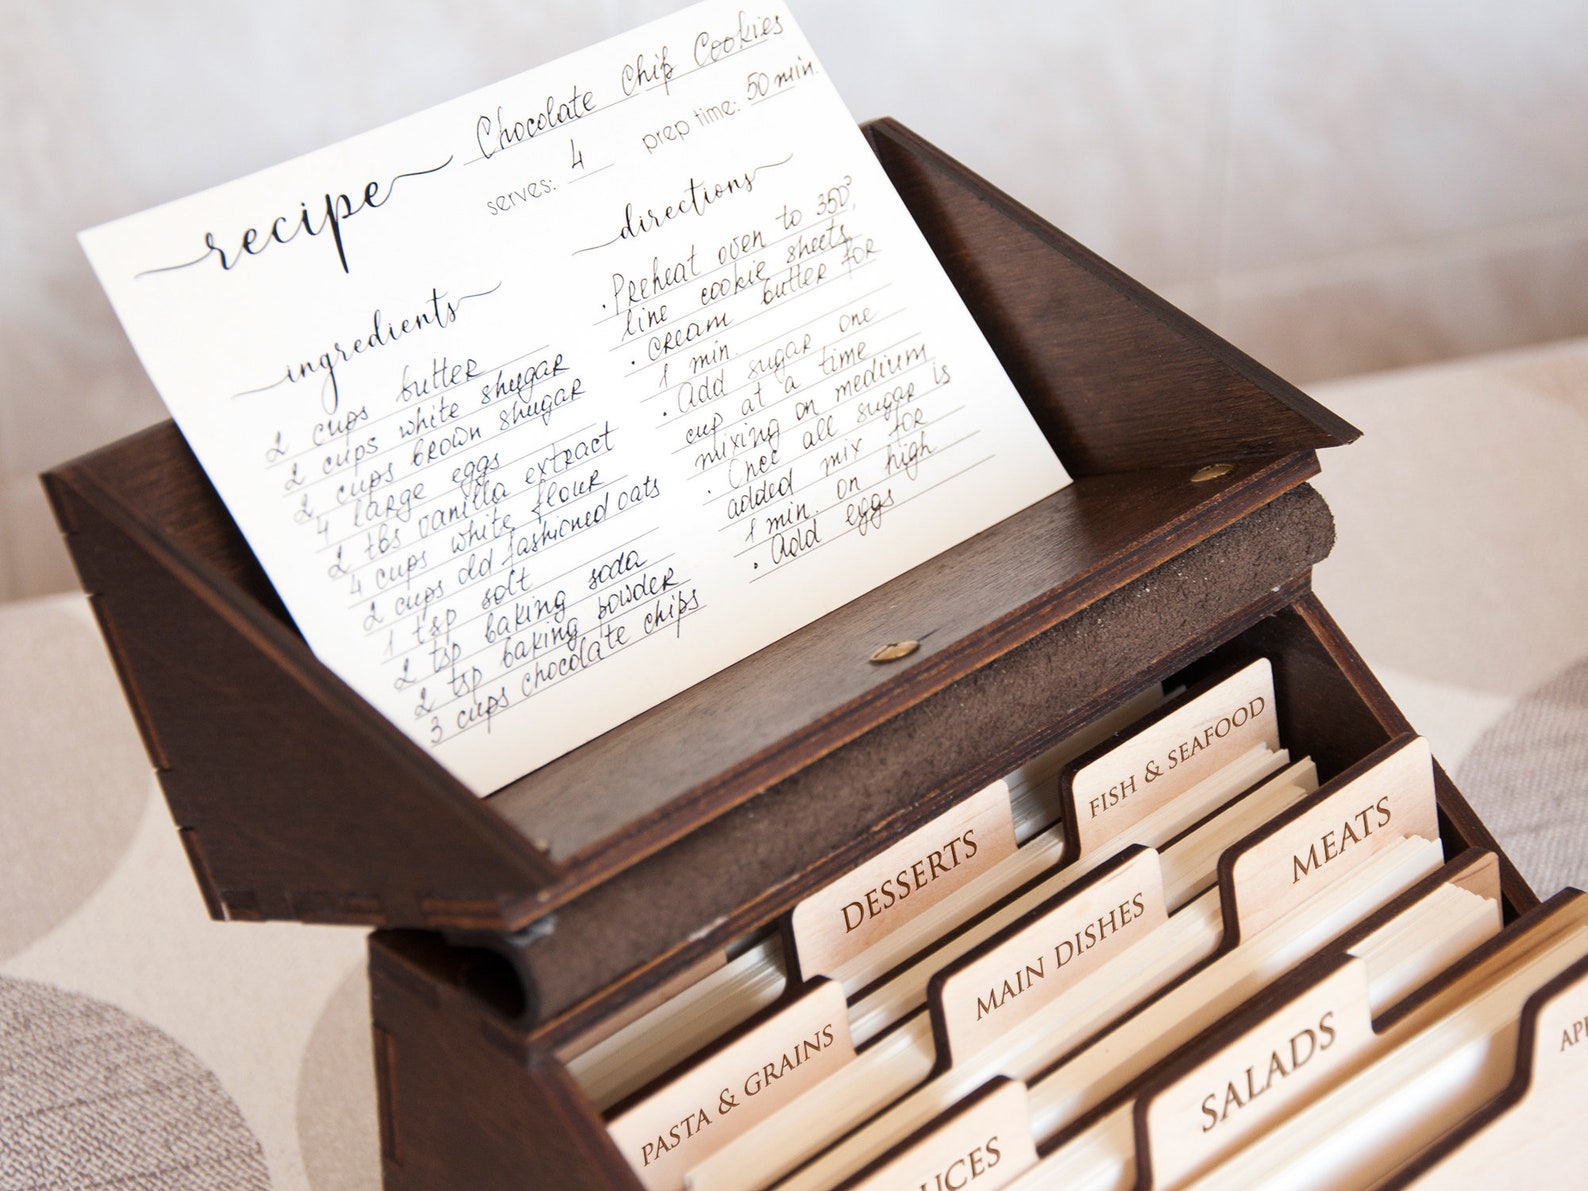 recipe Chocolate Chip Cookies
serves: 4 prep time: 50 min.
ingredients
2 cups butter
2 cups white shugar
2 cups brown shugar
4 large eggs
2 tbs vanilla extract
4 cups white flour
2 cups old fashioned oats
1 tsp solt
2 tsp baking soda
2 tsp baking powder
3 cups chocolate chips
directions
· Preheat oven to 350°,
line cookie sheets
· Cream butter for
1 min.
· Add sugar one
cup at a time
mixing on medium
· Once all sugar is
added mix for
1 min. on high
· Add eggs
FISH & SEAFOOD
DESSERTS
MEATS
MAIN DISHES
PASTA & GRAINS
SALADS
UCES
AP